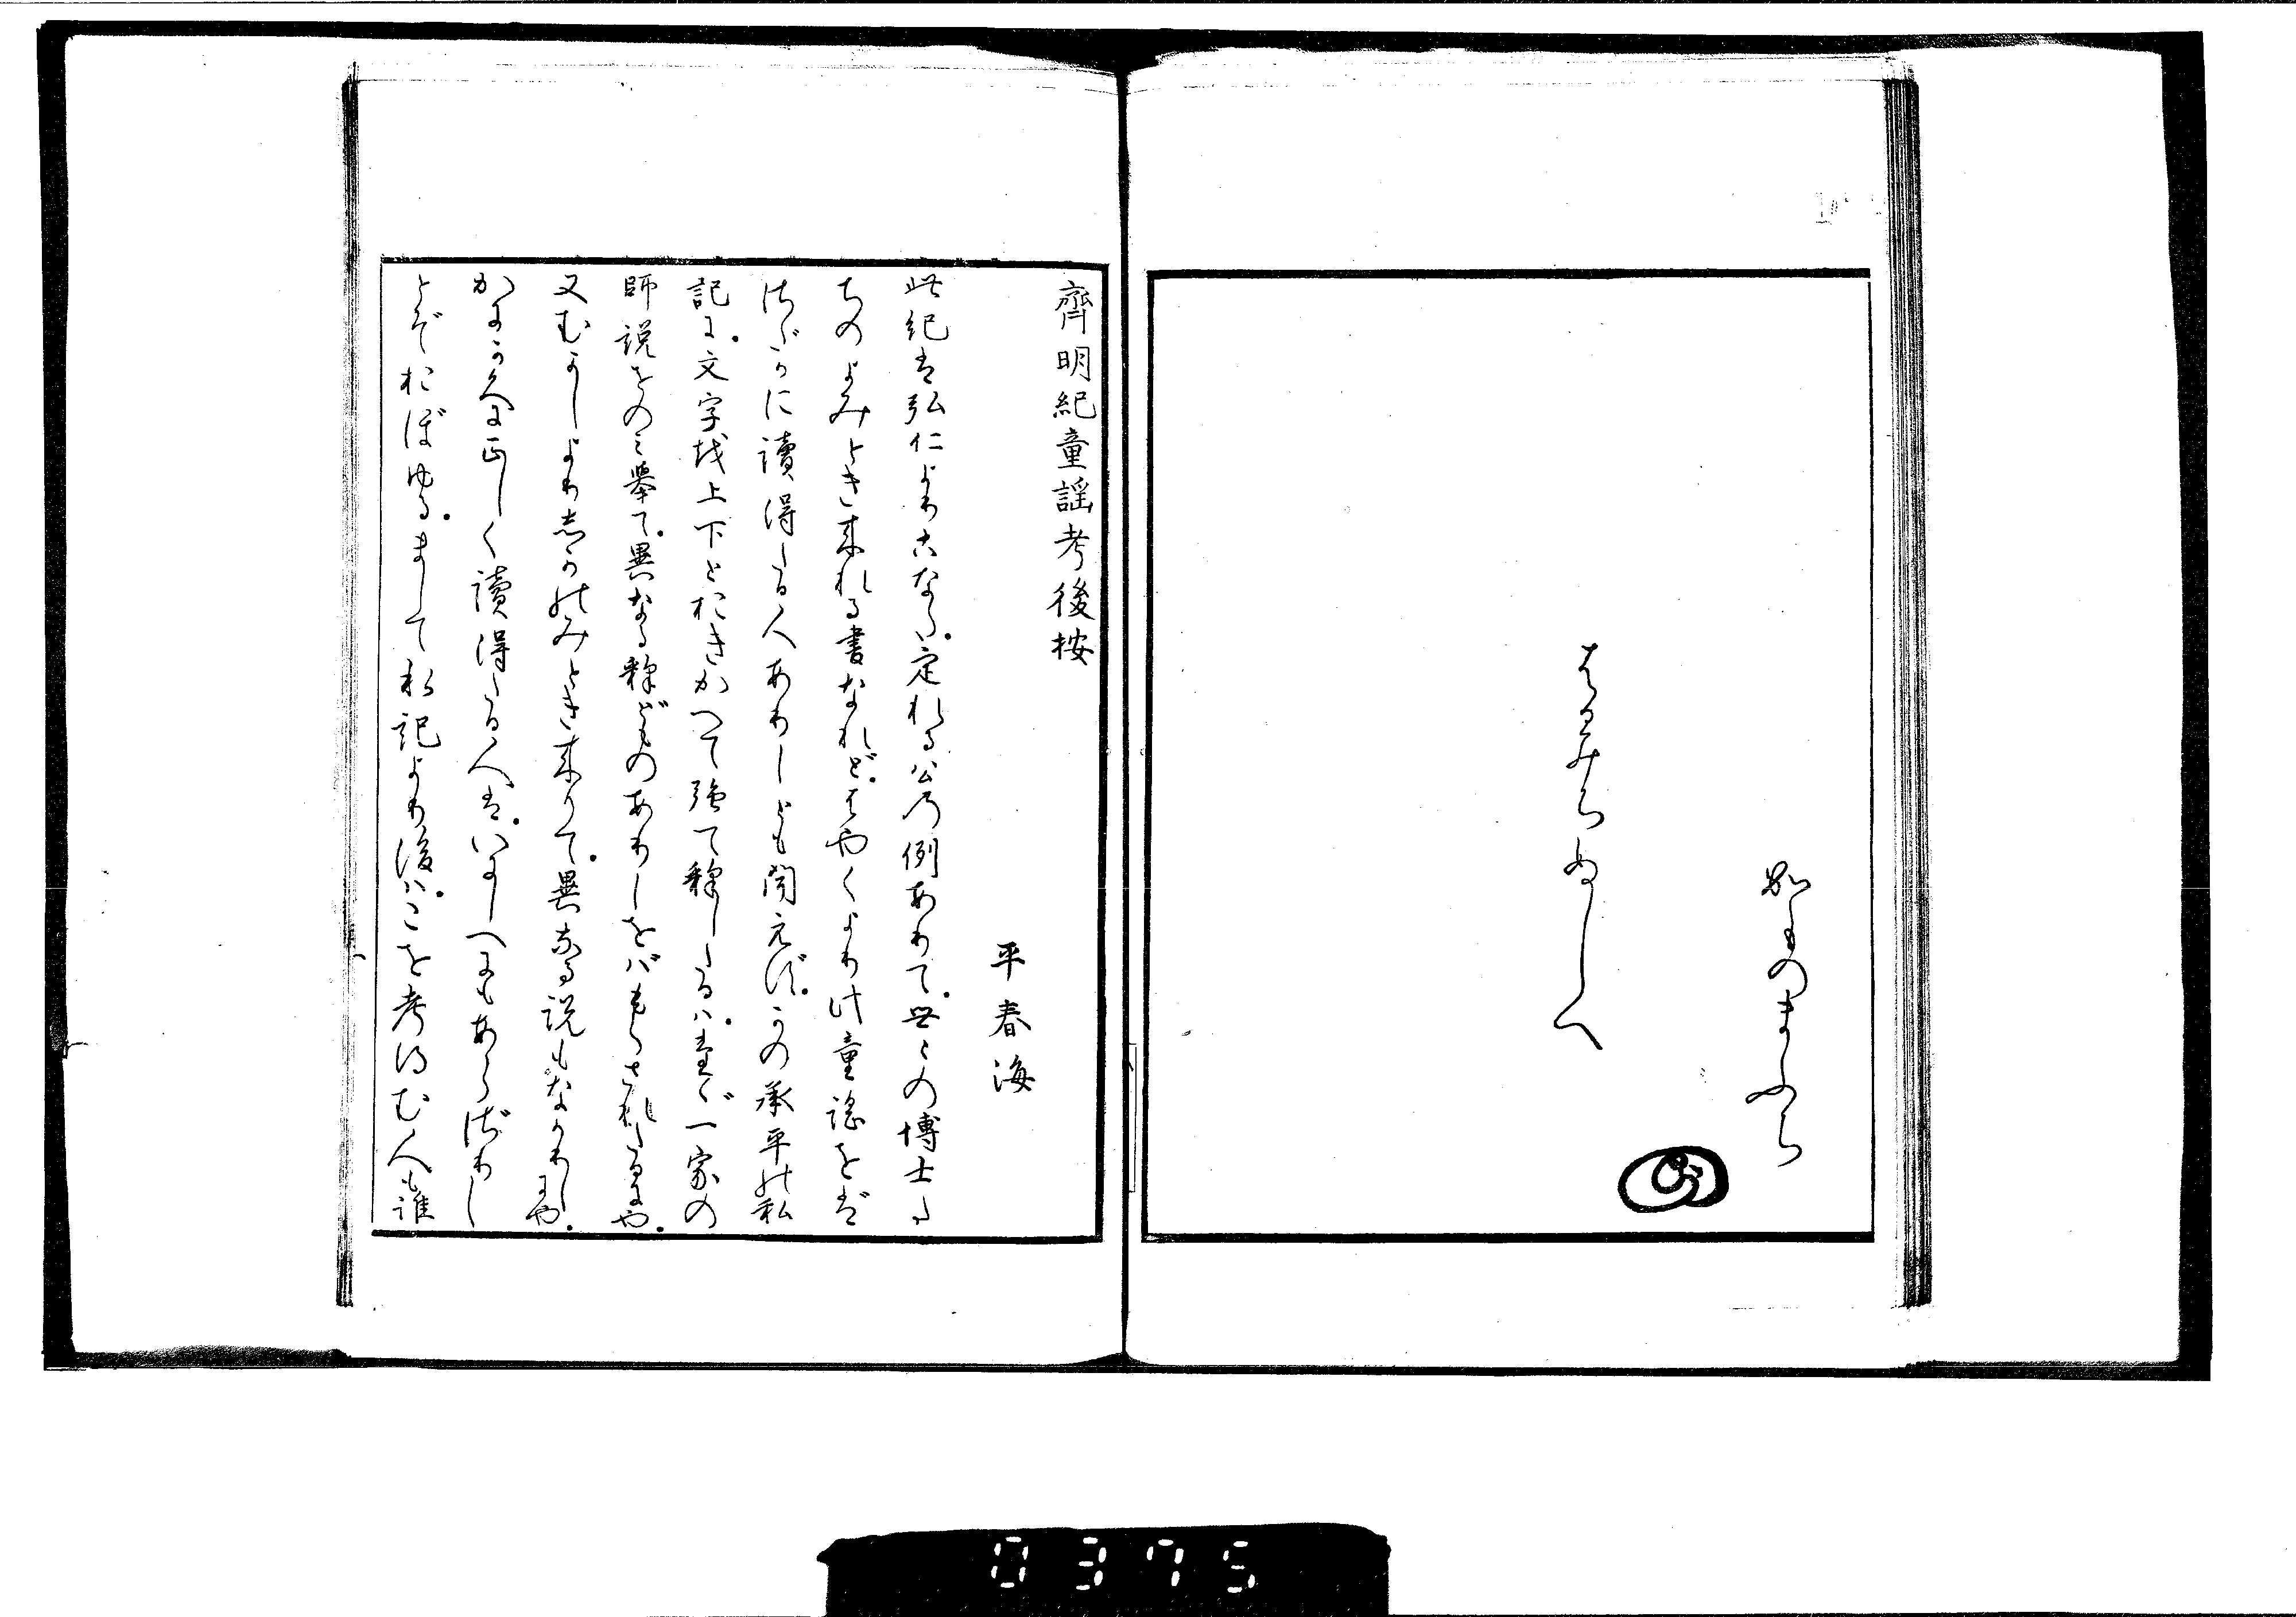 かものまふち
はるみちぬしへ
齊明紀童謡考後按
平春海
此紀は弘仁よりこなた。定れる公の例ありて。世々の博士た
ちのよみとき来れる書なれど。はやくより此童謡をば
さだかに讀得たる人ありしとも聞えず。かの承平の私
記に。文字を上下とおきかへて強て釋したるハ。たゞ一家の
師説をのミ擧て。異なる釋どものありしをバもらされたるにや。
又むかしよりしかのみとき来りて。異なる説もなかりしにや。
かにかくに正しく讀得たる人は。いにしへにもあらざりし
とぞおぼゆる。まして私記より後ハ。こを考得む人も誰
0375